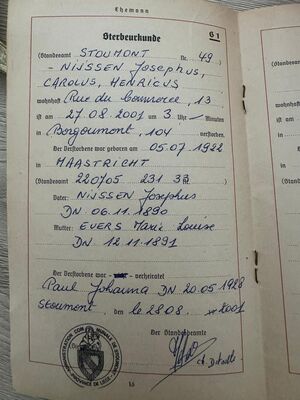 Ehemann
Sterbeurkunde G 1
(Standesamt STOUMONT Nr. 49)
- NIJSSEN Josephus,
CAROLUS, HENRICUS
wohnhaft Rue du Commerce, 13
ist am 27.08.2001 um 3 Uhr Minuten
in Borgoumont, 104 verstorben.
Der Verstorbene war geboren am 05.07.1922
in MAASTRICHT
(Standesamt 220705 231 33)
Vater: NIJSSEN Josephus
DN 06.11.1890
Mutter: EVERS Marie Louise
DN 12.11.1891
Der Verstorbene war verheiratet
Paul Johanna DN 20.05.1928
Stoumont, den 28.08 2001
Der Standesbeamte
ADMINISTRATION COMMUNALE DE STOUMONT
PROVINCE DE LIEGE
16